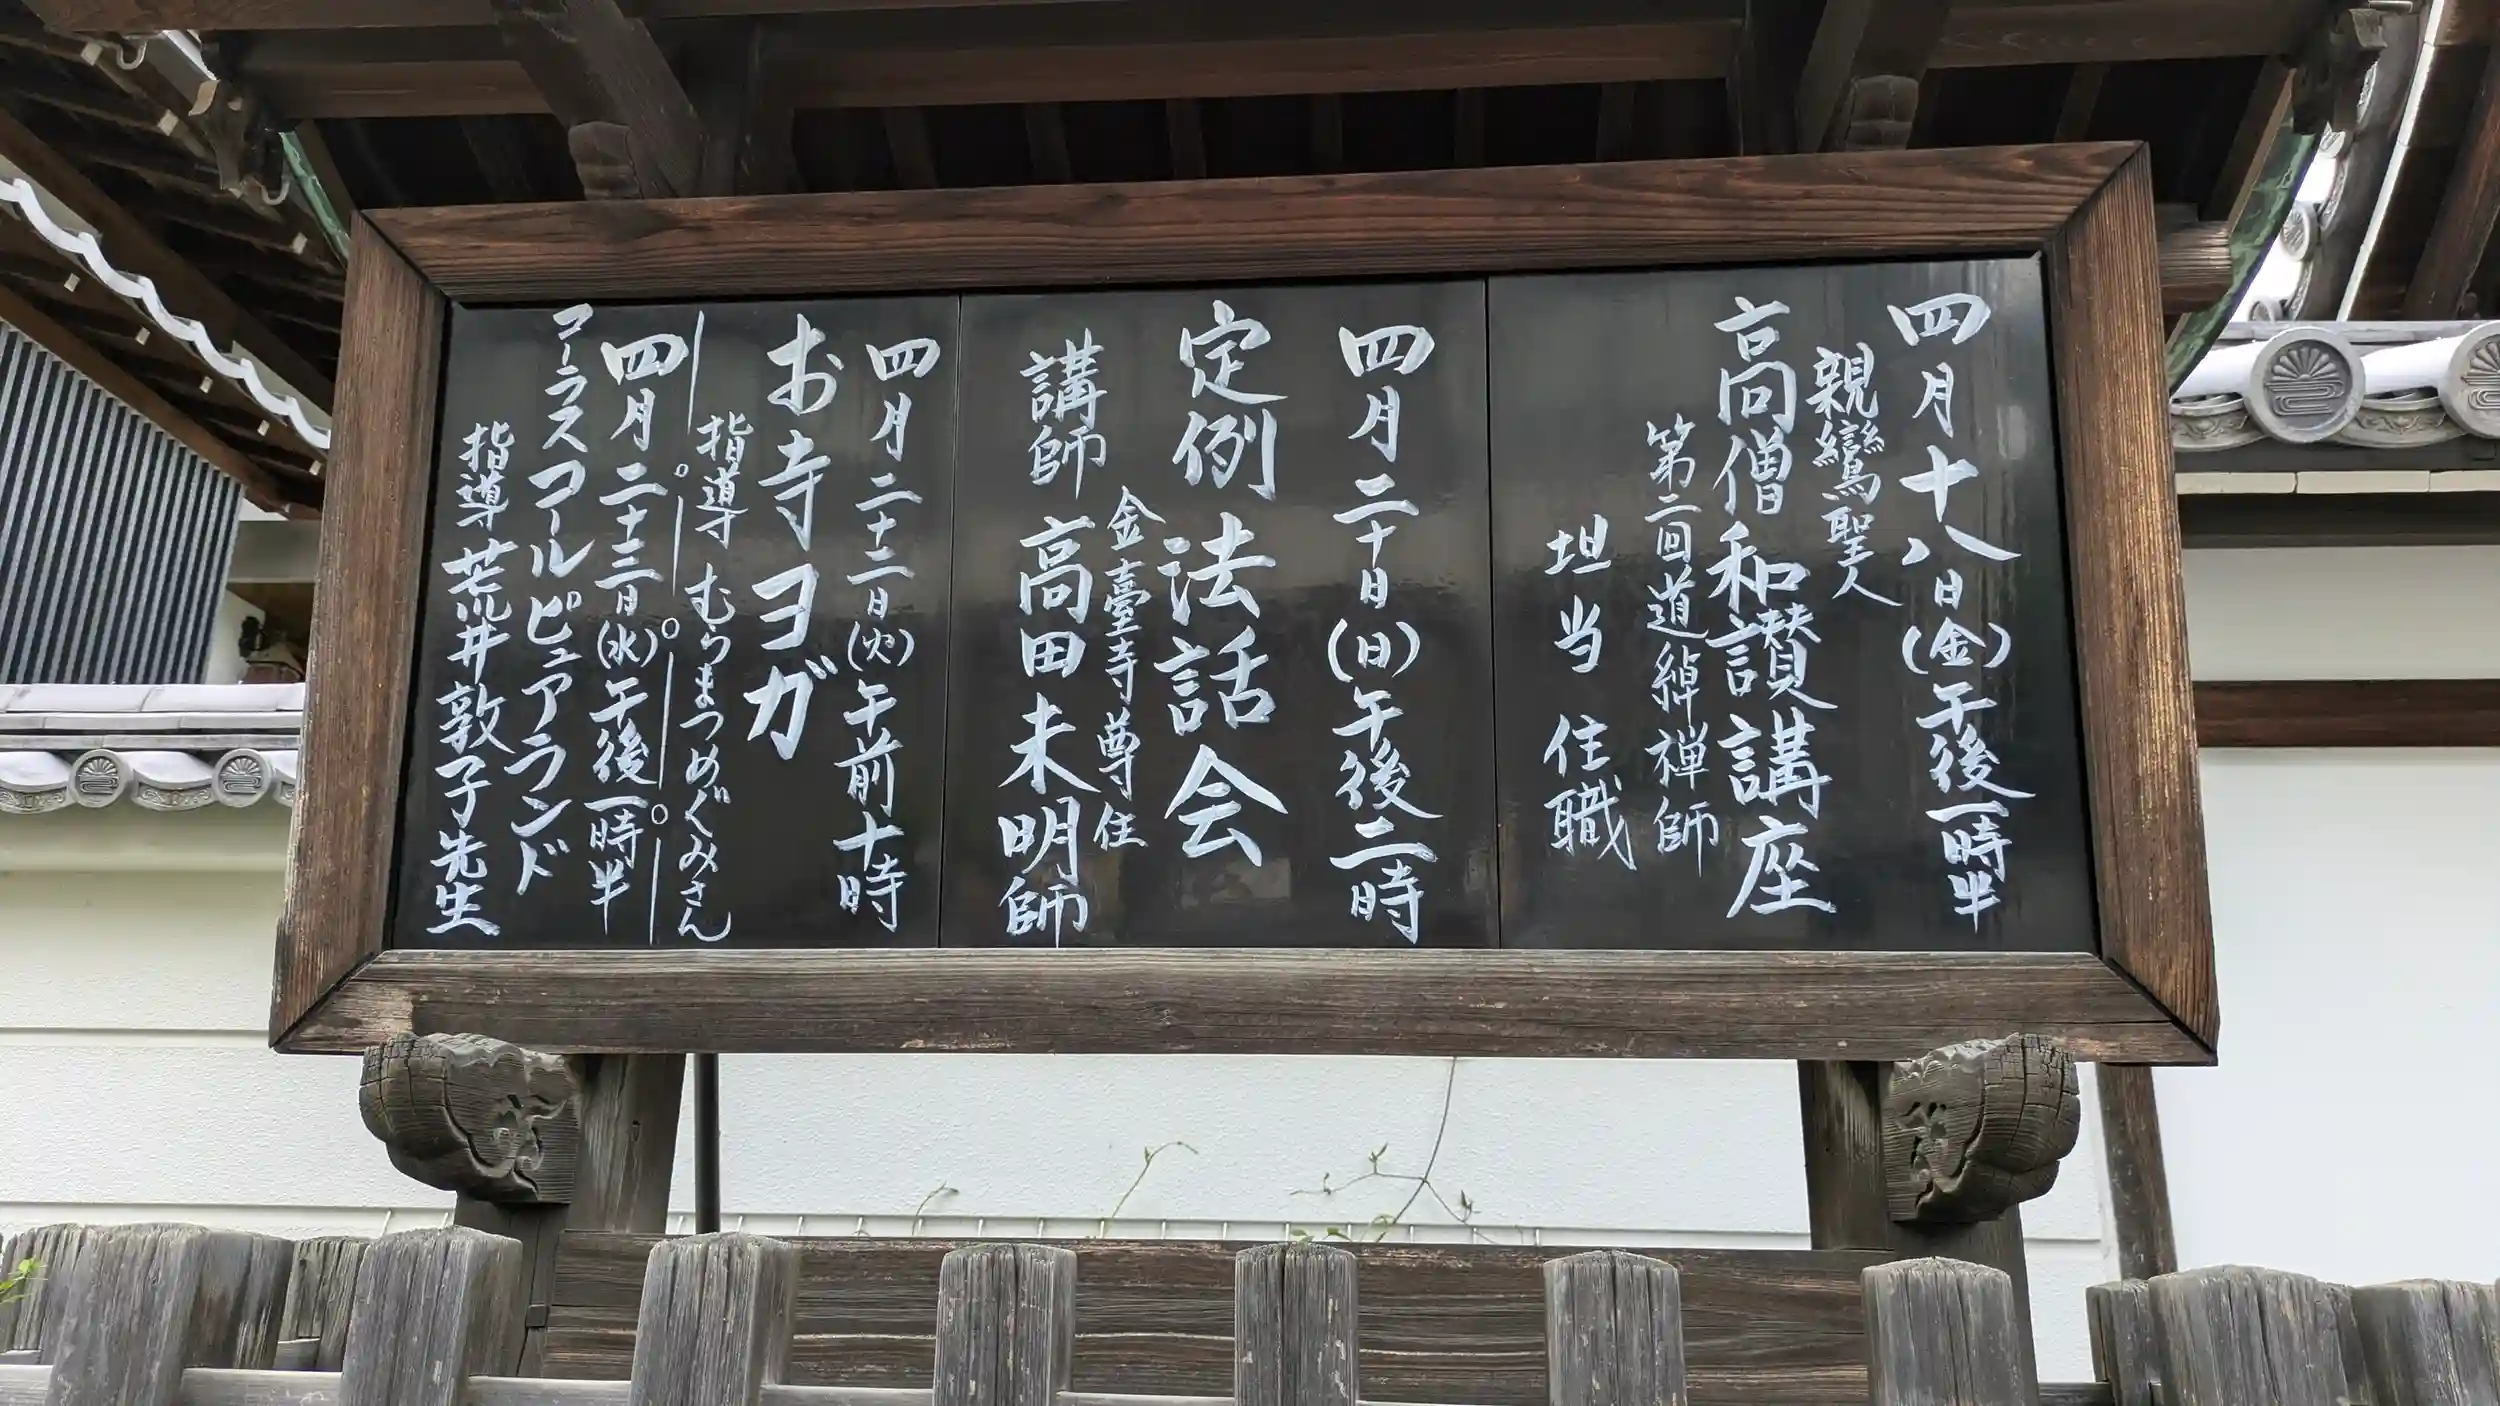 四月十八日(金)午後一時半
親鸞聖人
高僧和讃講座
第二回道綽禅師
担当 住職
四月二十日(日)午後二時
定例法話会
金臺寺尊住
講師 高田未明師
四月二十二日(火)午前十時
お寺ヨガ
指導 むらまつめぐみさん
四月二十三日(水)午後一時半
コーラス コールピュアランド
指導 荒井敦子先生